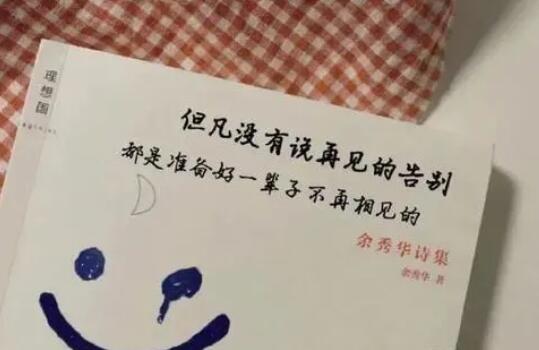 理想国
但凡没有说再见的告别
都是准备好一辈子不再相见的
余秀华诗集
余秀华 著